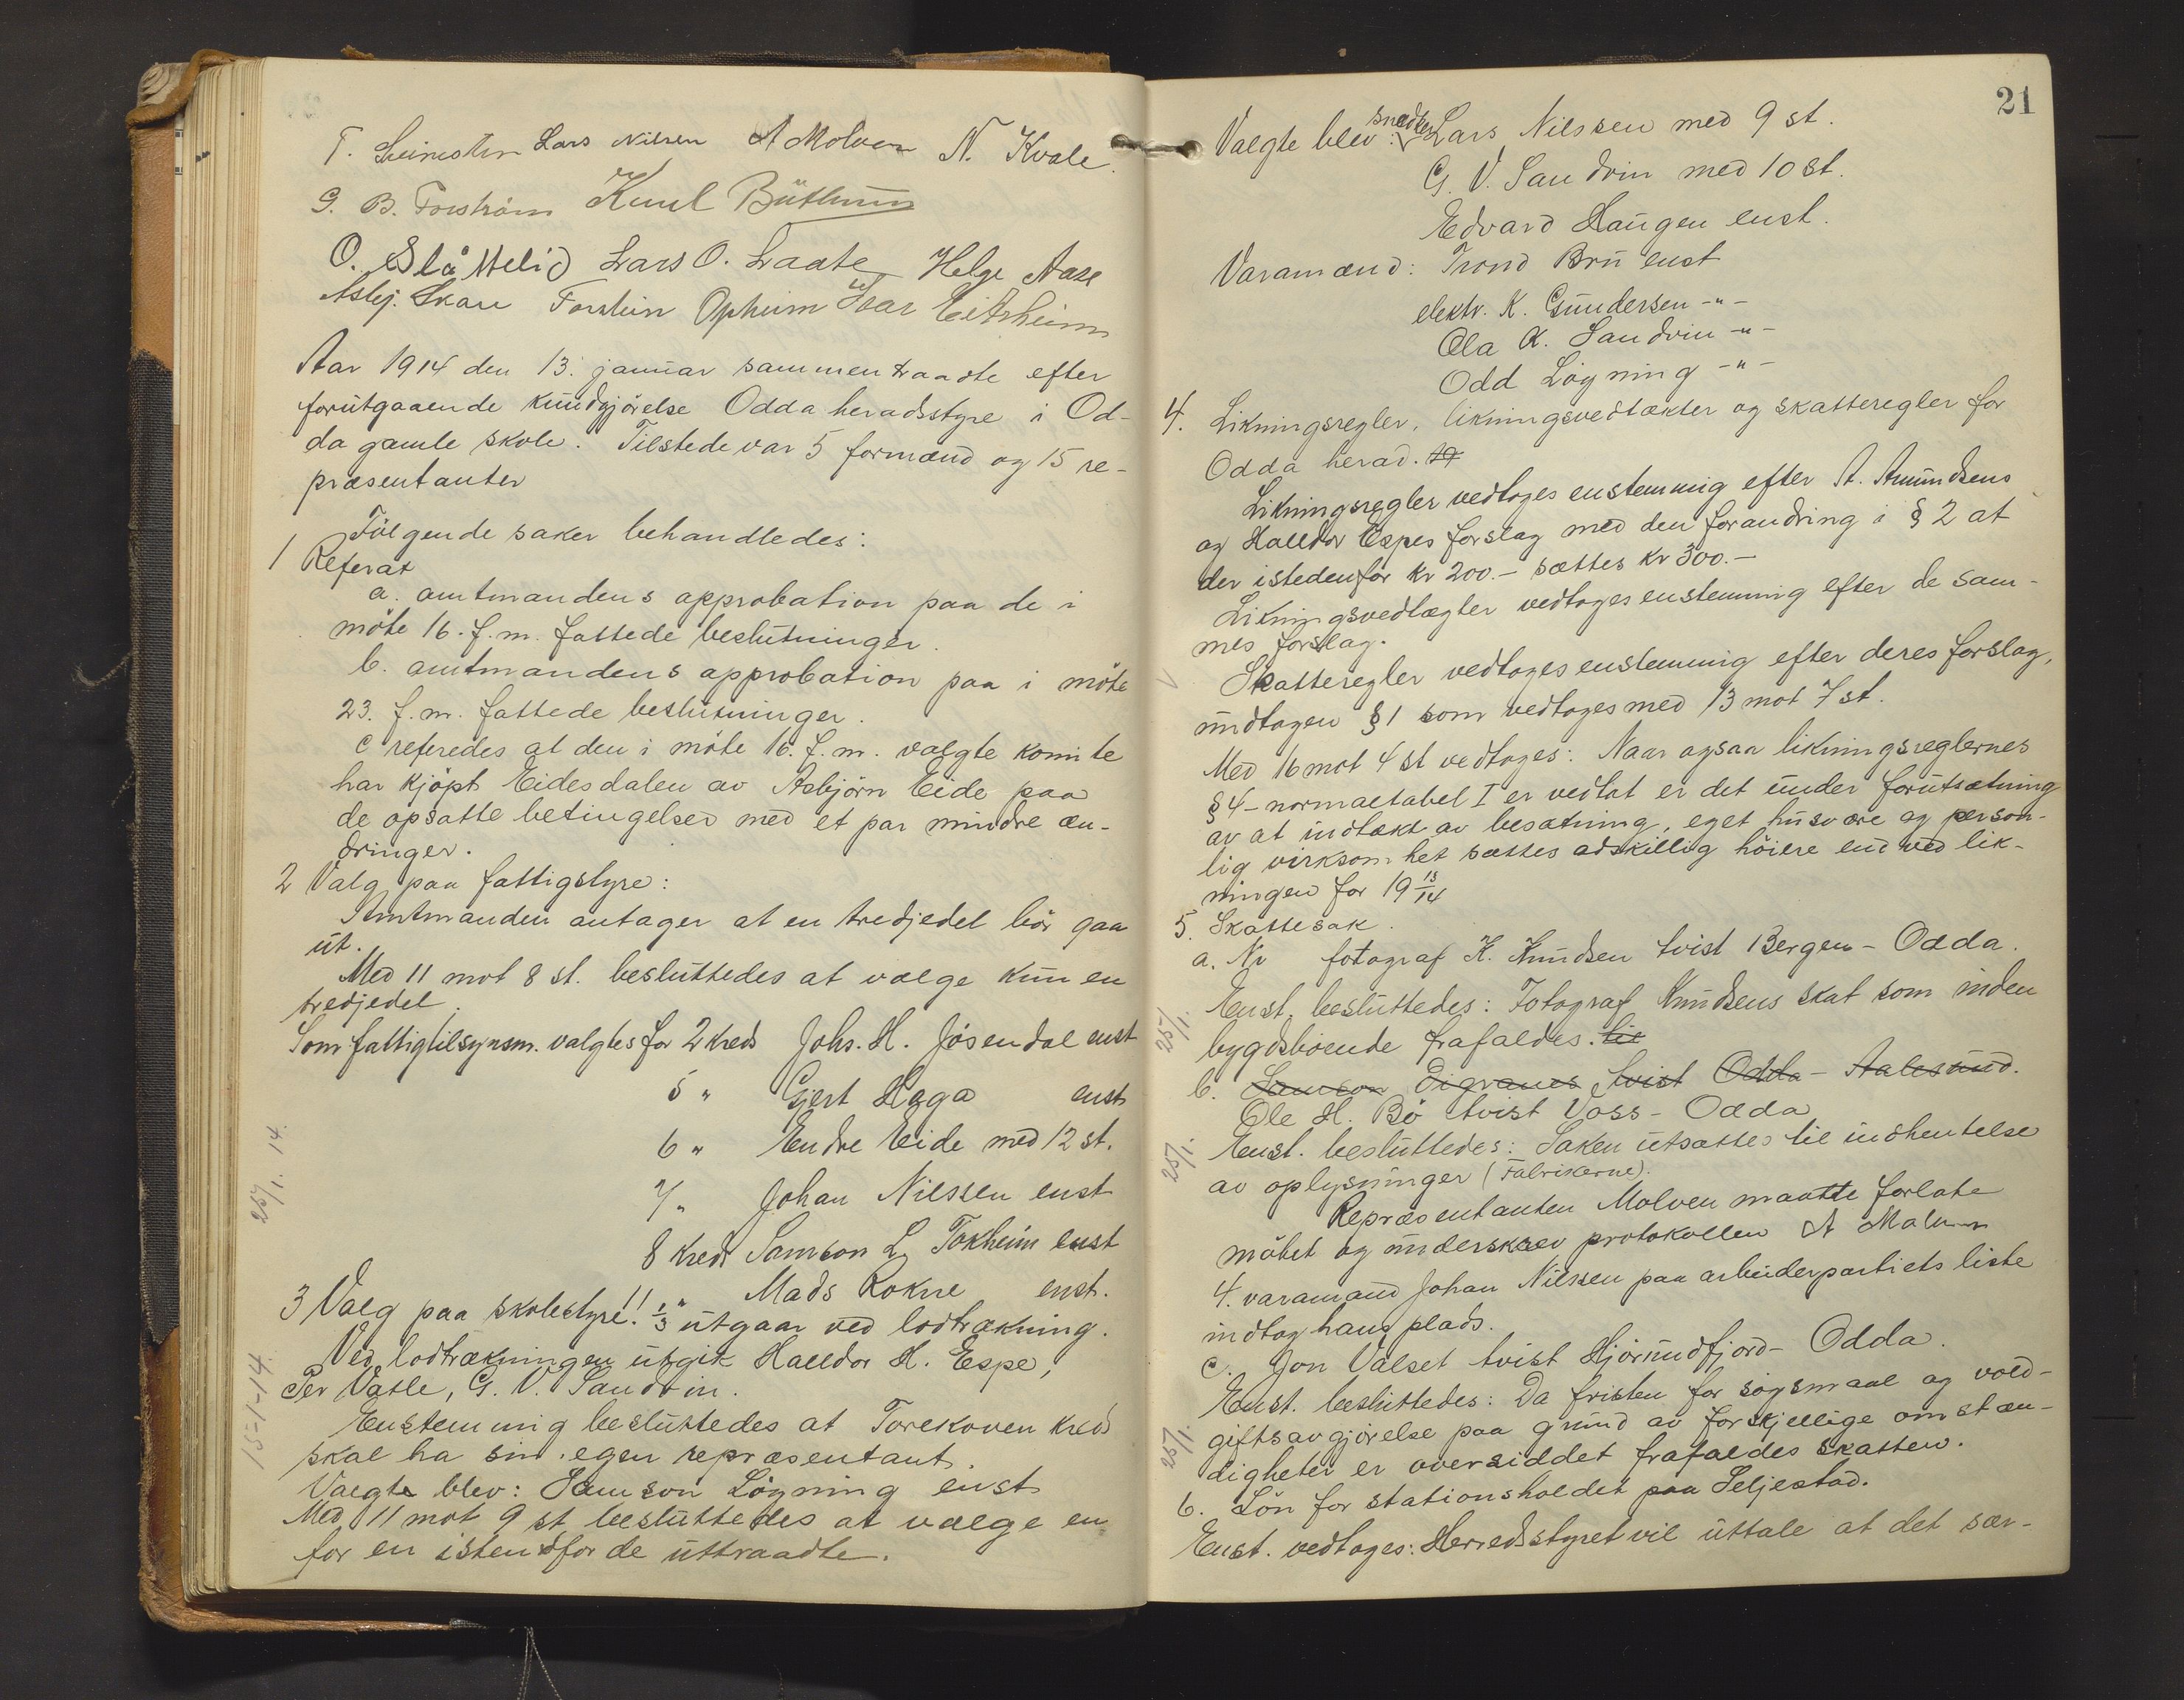 T. Lars Nilsen A Molven N. Kvale.
G. B. Forström Knut Büthun
O. Slåttelid Lars O. Traate Helge Aase
Asbj. Skare Torstein Opheim Ivar Eitrheim
Aar 1914 den 13. januar sammentraadte efter
forutgaaende kundgjörelse Odda heradsstyre i Od-
da gamle skole. Tilstede var 5 formænd og 15 re-
præsentanter
Fölgende saker behandledes:
1 Referat
a. amtmandens approbation paa de i
möte 16. f.m. fattede beslutninger.
b. amtmandens approbation paa i möte
23. f.m. fattede beslutninger.
c referedes at den i möte 16. f.m. valgte komite
har kjöpt Eidesdalen av Asbjörn Eide paa
de opsatte betingelser med et par mindre æn-
dringer.
2 Valg paa fattigstyre:
Amtmanden antager at en tredjedel bör gaa
ut.
Med 11 mot 8 st. besluttedes at vælge kun en
tredjedel.
Som fattigtilsynsm. valgtes for 2 kreds Johs. H. Jösendal enst
5 " Gjert Haga enst
6 " Endre Eide med 12 st.
7 " Johan Nilssen enst
25/1. 14.
8 kreds Samson L. Tokheim enst
11 " Mads Rokne enst.
3 Valg paa skolestyre! 1/3 utgaar ved lodtrækning.
Ved lodtrækningen utgik Halldor H. Espe,
Per Vasle, G. V. Sandvin.
15-1-14.
Enstemmig besluttedes at Torekoven kreds
skal ha sin egen repræsentant.
Valgte blev: Samson Lögning enst
Med 11 mot 9 st besluttedes at vælge en
for en istendfor de uttraadte.
21
Valgte blev: snedker Lars Nilssen med 9 st.
G. V. Sandvin med 10 st.
Edvard Haugen enst.
Varamænd: Trond Bru enst
elektr. K. Gundersen -"-
Ola K. Sandvin -"-
Odd Lögning -"-
4. Likningsregler, likningsvedtækter og skatteregler for
Odda herad.
Likningsregler vedtoges enstemmig efter A. Amundsens
og Halldor Espes forslag med den forandring i § 2 at
der istedenfor kr 200.- sættes kr 300.-
Likningsvedtægter vedtoges enstemmig efter de sam-
mes forslag.
Skatteregler vedtoges enstemmig efter deres forslag,
undtagen § 1 som vedtoges med 13 mot 7 st.
Med 16 mot 4 st vedtoges: Naar ogsaa likningsreglernes
§ 4 - normaltabel I er vedtat er det under forutsætning
av at indtækt av besætning, eget husvære og person-
lig virksomhet sættes adskillig höiere end ved lik-
ningen for 19 13/14
5. Skattesak.
a. Nr fotograf K. Knudsen tvist Bergen - Odda.
Enst. besluttedes: Fotograf Knudsens skat som inden
25/1.
bygdsboende frafaldes. til
b. Samson Digranes tvist Odda - Aalesund.
Ole H. Bö tvist Voss - Odda
Enst. besluttedes: Saken utsattes til indhentelse
25/1.
av oplysninger (Fabrikerne).
Repræsentanten Molven maatte forlate
mötet og underskrev protokollen A Molven
4. varamand Johan Nilssen paa arbeiderpartiets liste
indtog hans plads.
c. Jon Valset tvist Hjörundfjord - Odda.
Enst. besluttedes: Da fristen for sögsmaal og vold-
giftsavgjörelse paa grund av forskjellige omstæn-
25/1.
digheter er oversiddet frafaldes skatten.
6. Lön for stationsholdet paa Seljestad.
Enst. vedtoges: Herredsstyret vil uttale at det sær-